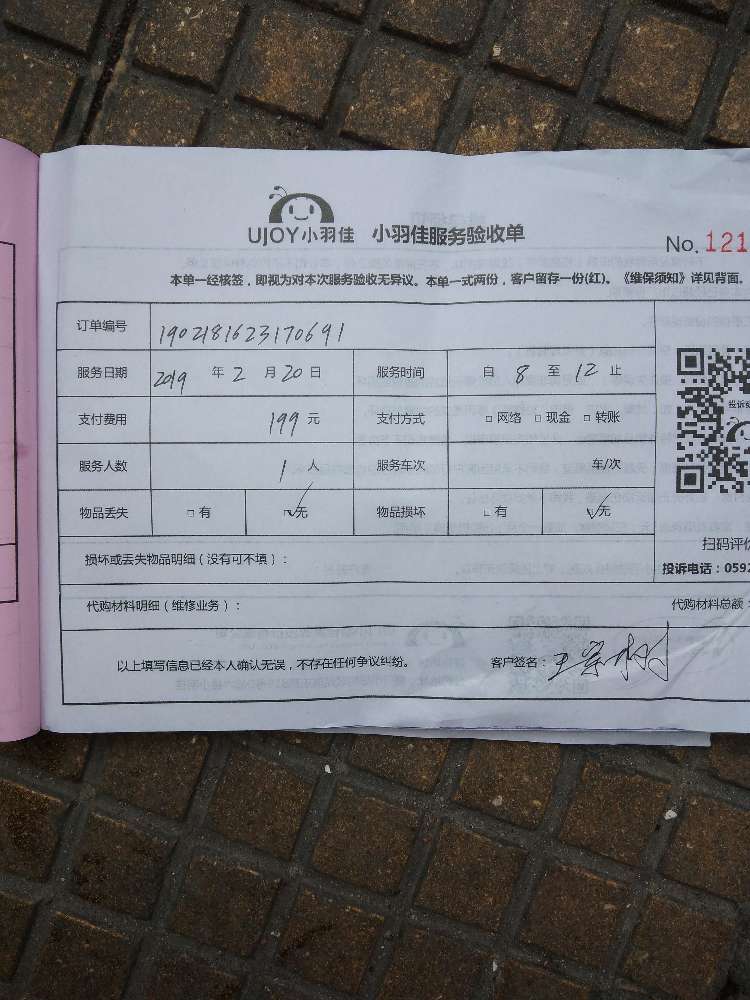 UJOY小羽佳 小羽佳服务验收单
No. 121
本单一经核签，即视为对本次服务验收无异议。本单一式两份，客户留存一份(红)。《维保须知》详见背面。
订单编号 1902181623170691
服务日期 2019 年 2 月 20 日 服务时间 自 8 至 12 止
支付费用 199 元 支付方式 □ 网络 □ 现金 □ 转账
服务人数 1 人 服务车次 车/次
物品丢失 □ 有 ☑ 无 物品损坏 □ 有 ☑ 无
投诉
扫码评价
损坏或丢失物品明细（没有可不填）：
投诉电话：0592
代购材料明细（维修业务）： 代购材料总额：
以上填写信息已经本人确认无误，不存在任何争议纠纷。 客户签名：